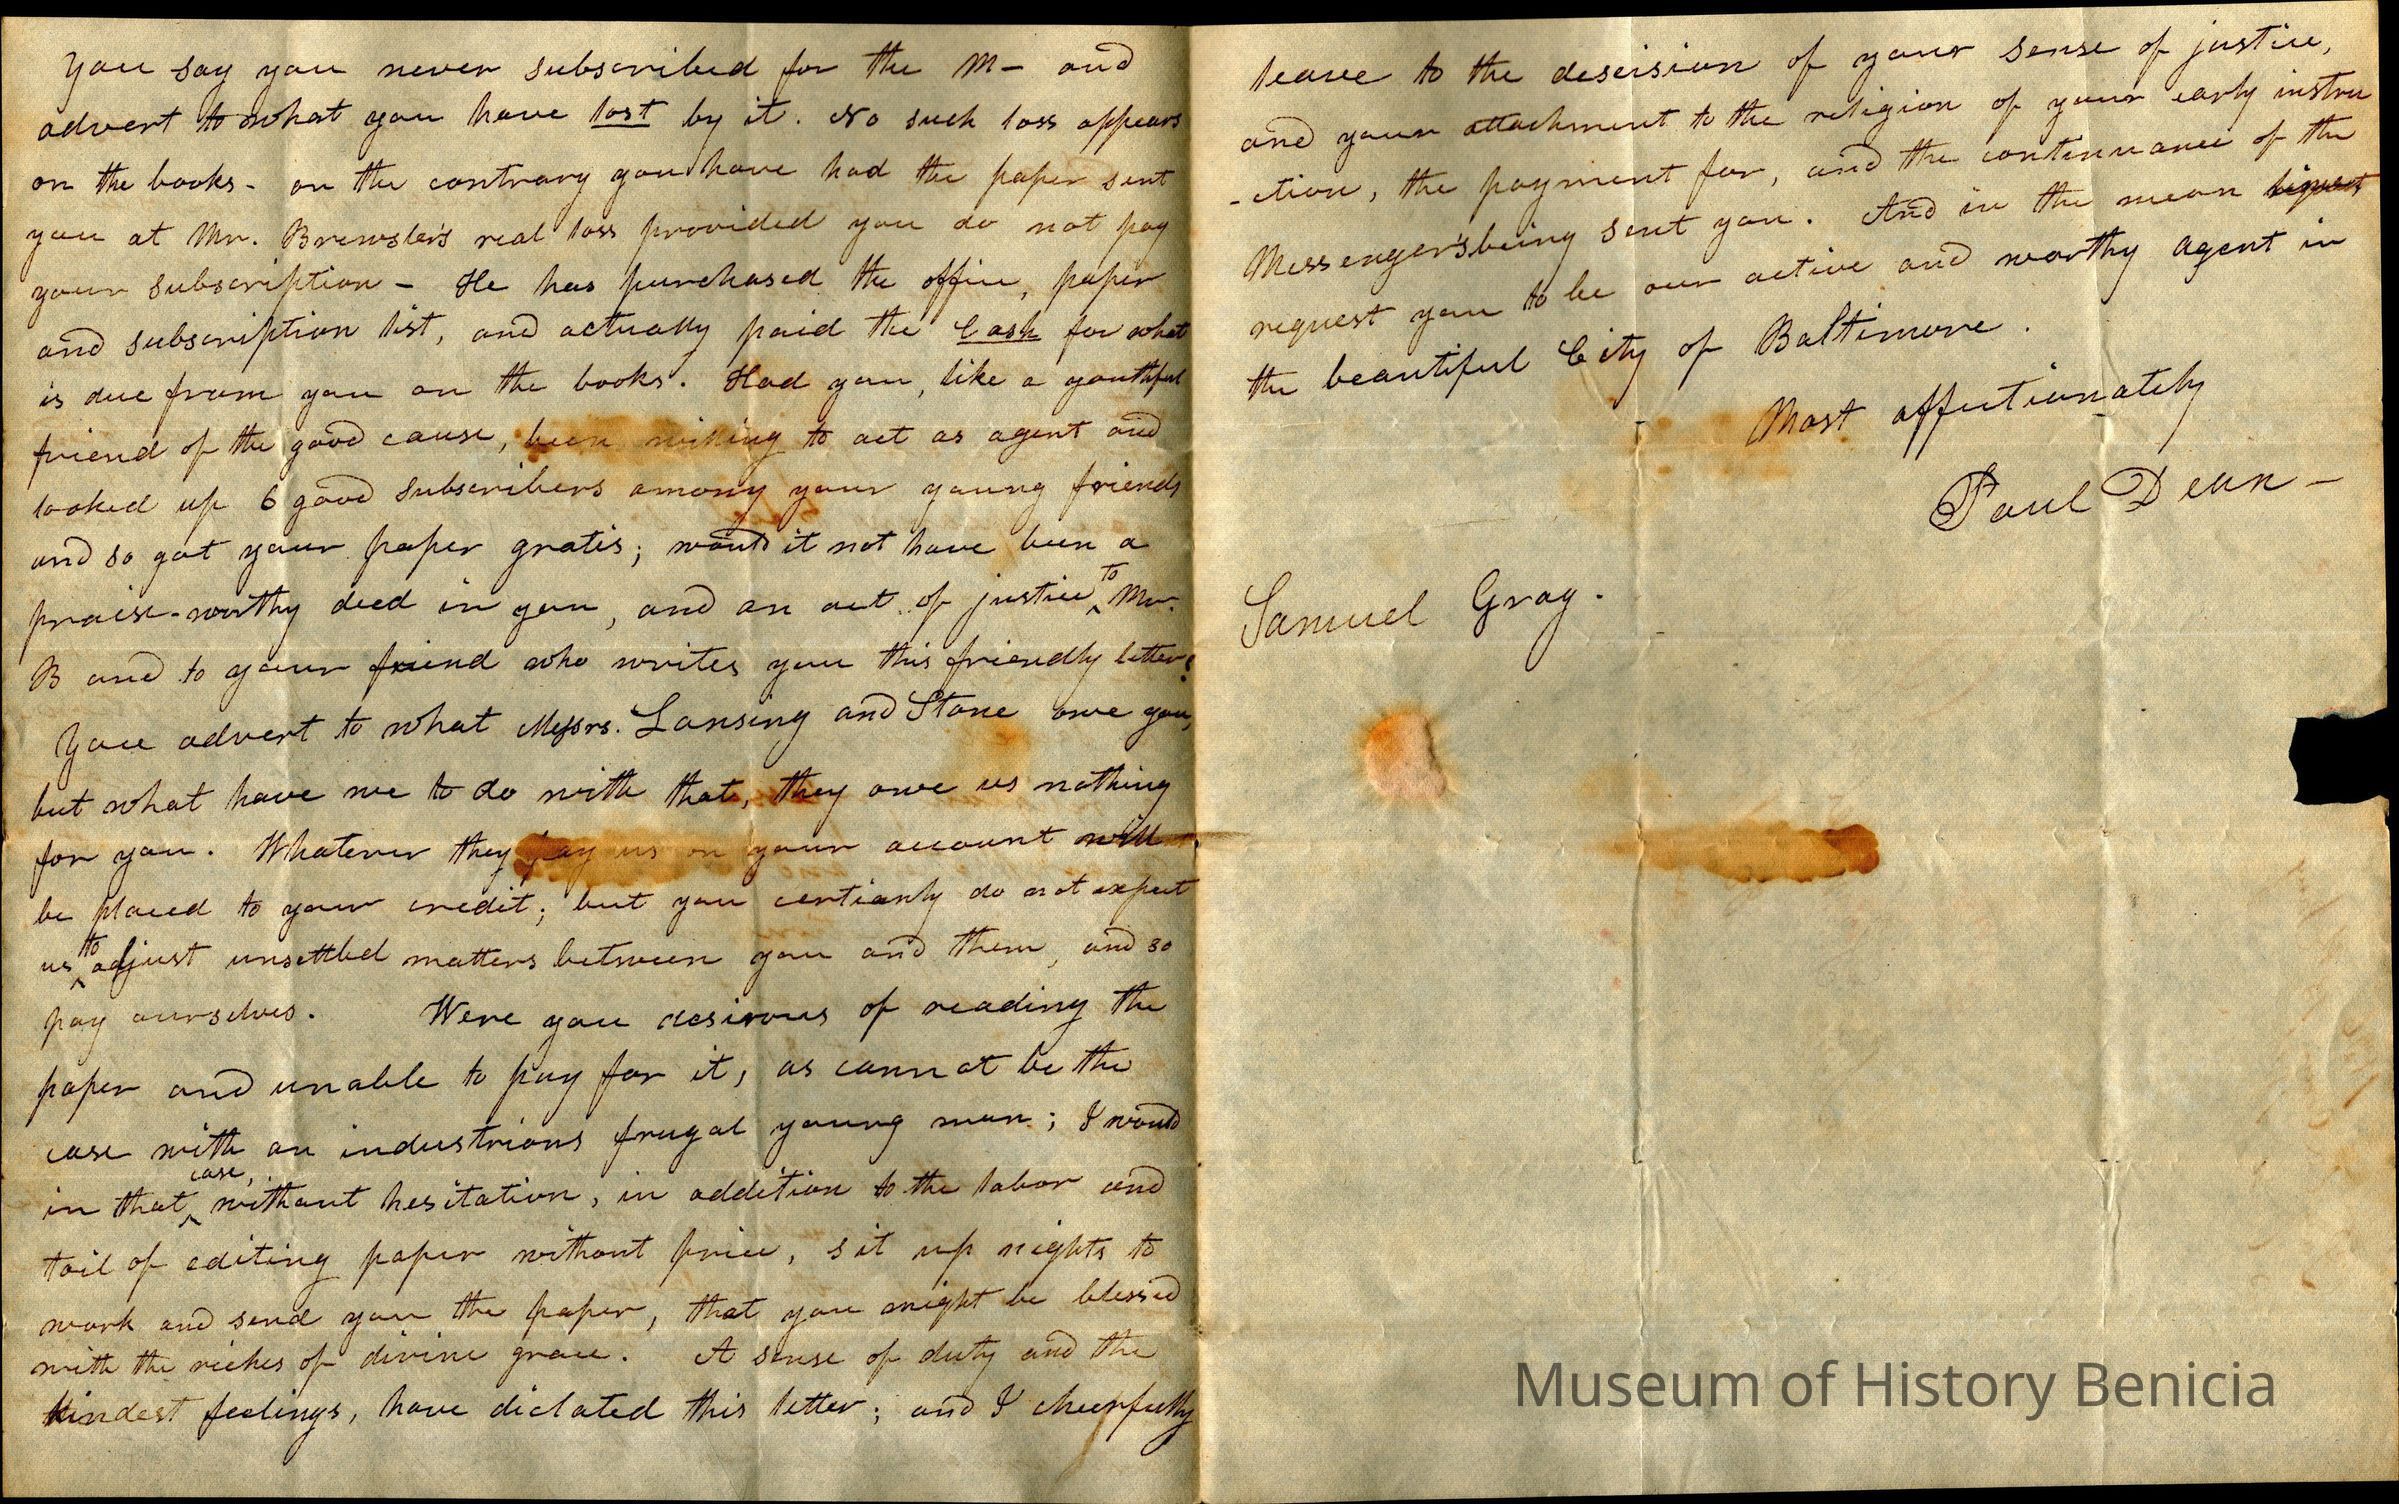 You say you never subscribed for the M– and
advert to what you have lost by it. No such loss appears
on the books – on the contrary you have had the paper sent
you at Mr. Brewster's real loss provided you do not pay
your subscription – He has purchased the office, paper
and subscription list, and actually paid the Cash for what
is due from you on the books. Had you, like a youthful
friend of the good cause, been willing to act as agent and
looked up 6 good subscribers among your young friends
and so got your paper gratis; would it not have been a
praise-worthy deed in you, and an act of justice to Mr.
B and to your friend who writes you this friendly letter?
You advert to what Messrs. Lansing and Stone owe you,
but what have we to do with that, they owe us nothing
for you. Whatever they pay us on your account will
be placed to your credit; but you certianly do not expect
us to adjust unsettled matters between you and them, and so
pay ourselves. Were you desirous of reading the
paper and unable to pay for it, as cannot be the
case with an industrious frugal young man; I would
in that case, without hesitation, in addition to the labor and
toil of editing paper without price, sit up nights to
work and send you the paper, that you might be blessed
with the riches of divine grace. A sense of duty and the
kindest feelings, have dictated this letter; and I cheerfully
leave to the descision of your sense of justice,
and your attachment to the religion of your early instru
-ction, the payment for, and the continuance of the
Messenger's being sent you. And in the mean
request you to be our active and worthy agent in
the beautiful City of Baltimore.
Most affectionately
Paul Dean –
Samuel Gray.
Museum of History Benicia